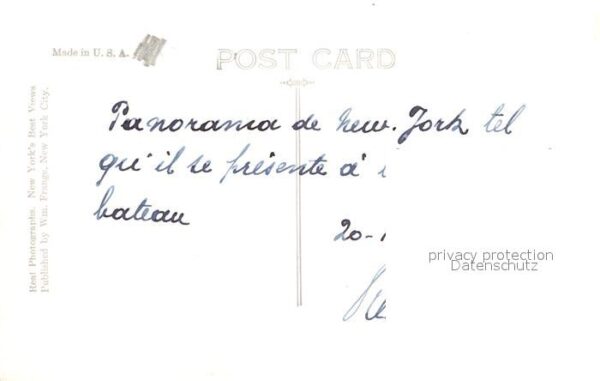 Made in U. S. A.
POST CARD
Panorama de New-York tel
qu'il se présente à
bateau
20-1
privacy protection
Datenschutz
Real Photographs, New York's Best Views
Published by Wm. Frange, New York City.